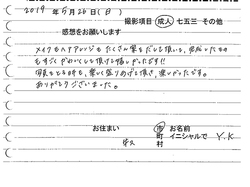 2019年5月26日(日)
撮影項目 成人 七五三 その他
感想をお願いします
メイクもヘアアレンジもたくさん要望をだして頂いて、完成したもの
もすごくかわいくして頂けて嬉しかったです!!
写真をとる時も、楽しく盛りあげて頂き、楽しかったです。
ありがとうございました。
お住まい 市 お名前
町 イニシャルで Y.K
村